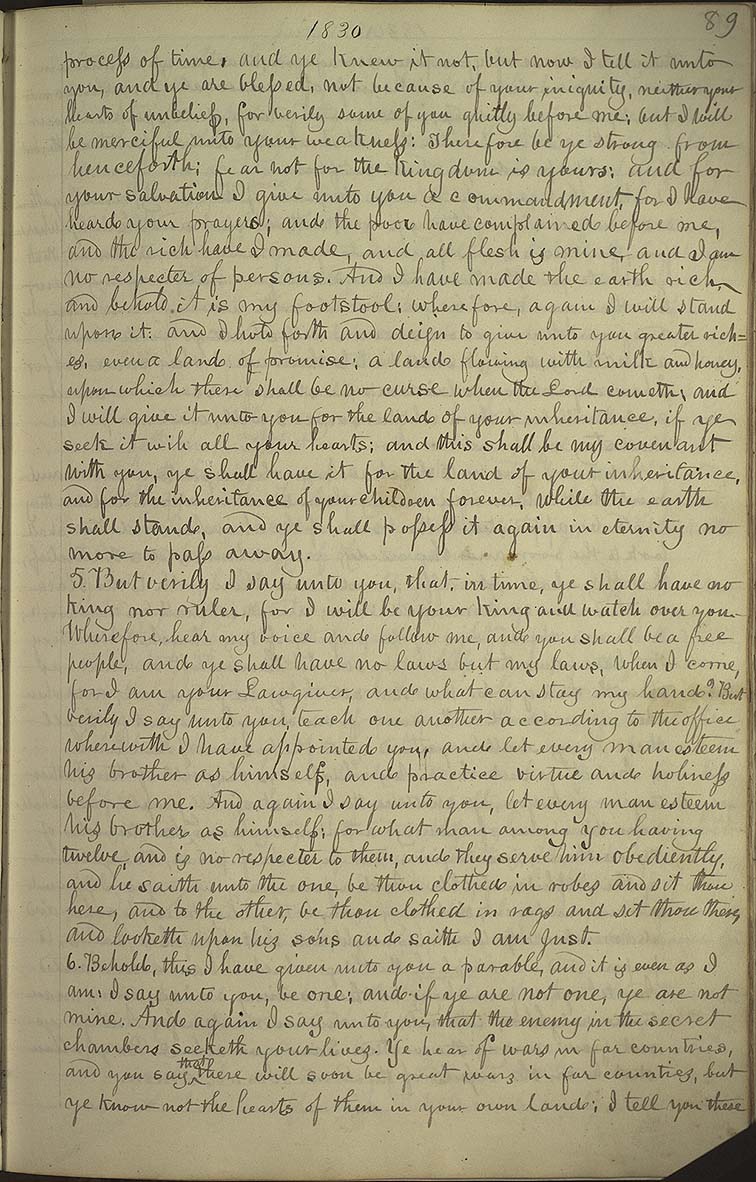 1830
89
process of time, and ye knew it not, but now I tell it unto
you, and ye are blessed, not because of your iniquity, neither your
hearts of unbelief, for verily some of you guilty before me; but I will
be merciful unto your weakness: Therefore be ye strong from
henceforth; fear not for the kingdom is yours: and for
your salvation I give unto you a commandment, for I have
heard your prayers; and the poor have complained before me,
and the rich have I made, and all flesh is mine, and I am
no respecter of persons. And I have made the earth rich,
and behold it is my footstool: wherefore, again I will stand
upon it: and I hold forth and deign to give unto you greater rich=
es, even a land of promise; a land flowing with milk and honey,
upon which there shall be no curse when the Lord cometh; and
I will give it unto you for the land of your inheritance, if ye
seek it with all your hearts; and this shall be my covenant
with you, ye shall have it for the land of your inheritance,
and for the inheritance of your children forever, while the earth
shall stand, and ye shall possess it again in eternity no
more to pass away.
5. But verily I say unto you, that, in time, ye shall have no
king nor ruler, for I will be your King and watch over you.
Wherefore, hear my voice and follow me, and you shall be a free
people, and ye shall have no laws but my laws, when I come,
for I am your Lawgiver, and what can stay my hand? But
verily I say unto you, teach one another according to the office
wherewith I have appointed you, and let every man esteem
his brother as himself, and practice virtue and holiness
before me. And again I say unto you, let every man esteem
his brother as himself; for what man among you having
twelve, and is no respecter to them, and they serve him obediently,
and he saith unto the one, be thou clothed in robes and sit thou
here, and to the other, be thou clothed in rags and sit thou there,
and looketh upon his sons and saith I am just.
6. Behold, this I have given unto you a parable, and it is even as I
am: I say unto you, be one; and if ye are not one, ye are not
mine. And again I say unto you, that the enemy in the secret
chambers seeketh your lives. Ye hear of wars in far countries,
and you say that there will soon be great wars in far countries, but
ye know not the hearts of them in your own land; I tell you these